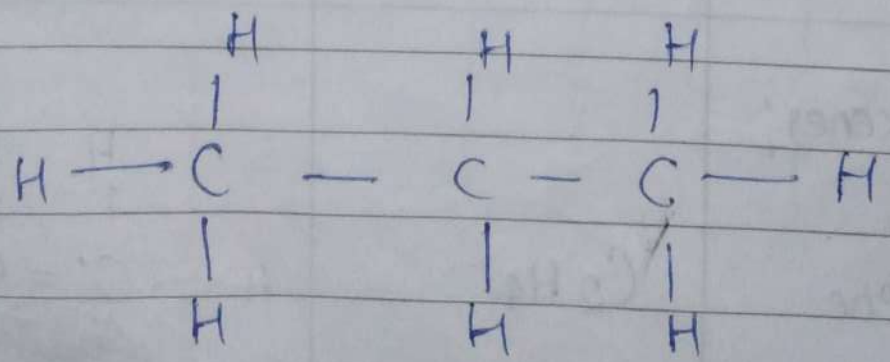 H H H
| | |
H — C — C — C — H
| | |
H H H